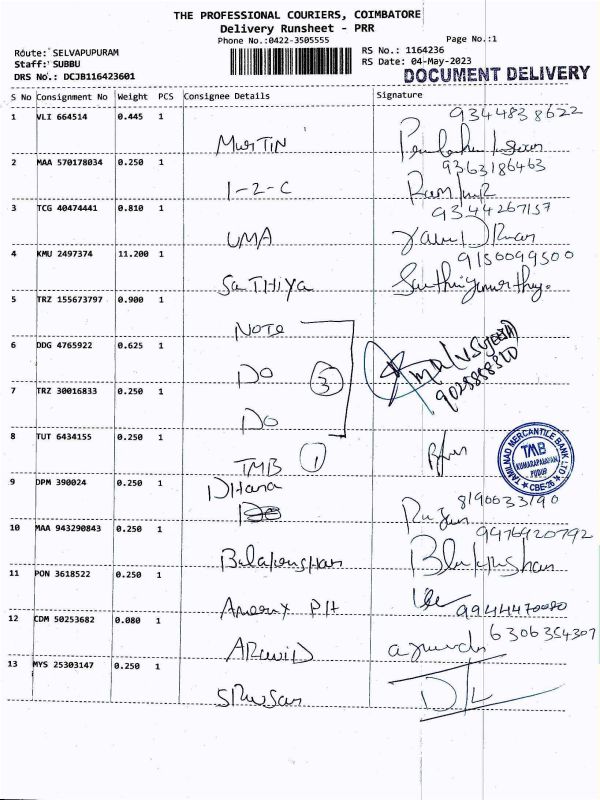 THE PROFESSIONAL COURIERS, COIMBATORE
Delivery Runsheet - PRR
Phone No.:0422-3505555
Page No.:1
Route: SELVAPUPURAM
Staff: SUBBU
DRS No.: DCJB116423601
RS No.: 1164236
RS Date: 04-May-2023
DOCUMENT DELIVERY
S No Consignment No Weight PCS Consignee Details Signature
9344838622
1 VLI 664514 0.445 1
MURTIN
9363186463
2 MAA 570178034 0.250 1
1-2-C
9344267157
3 TCG 40474441 0.810 1
UMA
9150099500
4 KMU 2497374 11.200 1
SaTHIYa
5 TRZ 155673797 0.900 1
NOTE
6 DDG 4765922 0.625 1
DO 3
7 TRZ 30016833 0.250 1
DO
8 TUT 6434155 0.250 1
TMB 1
TAMILNAD MERCANTILE BANK LTD.
TMB
KUMARAPALAYAM
PUDUR
CBE-26
9 DPM 390024 0.250 1
DHana
8190033190
10 MAA 943290843 0.250 1
9976920792
11 PON 3618522 0.250 1
12 CDM 50253682 0.080 1
9944470020
6306354307
ARaviD
13 MYS 25303147 0.250 1